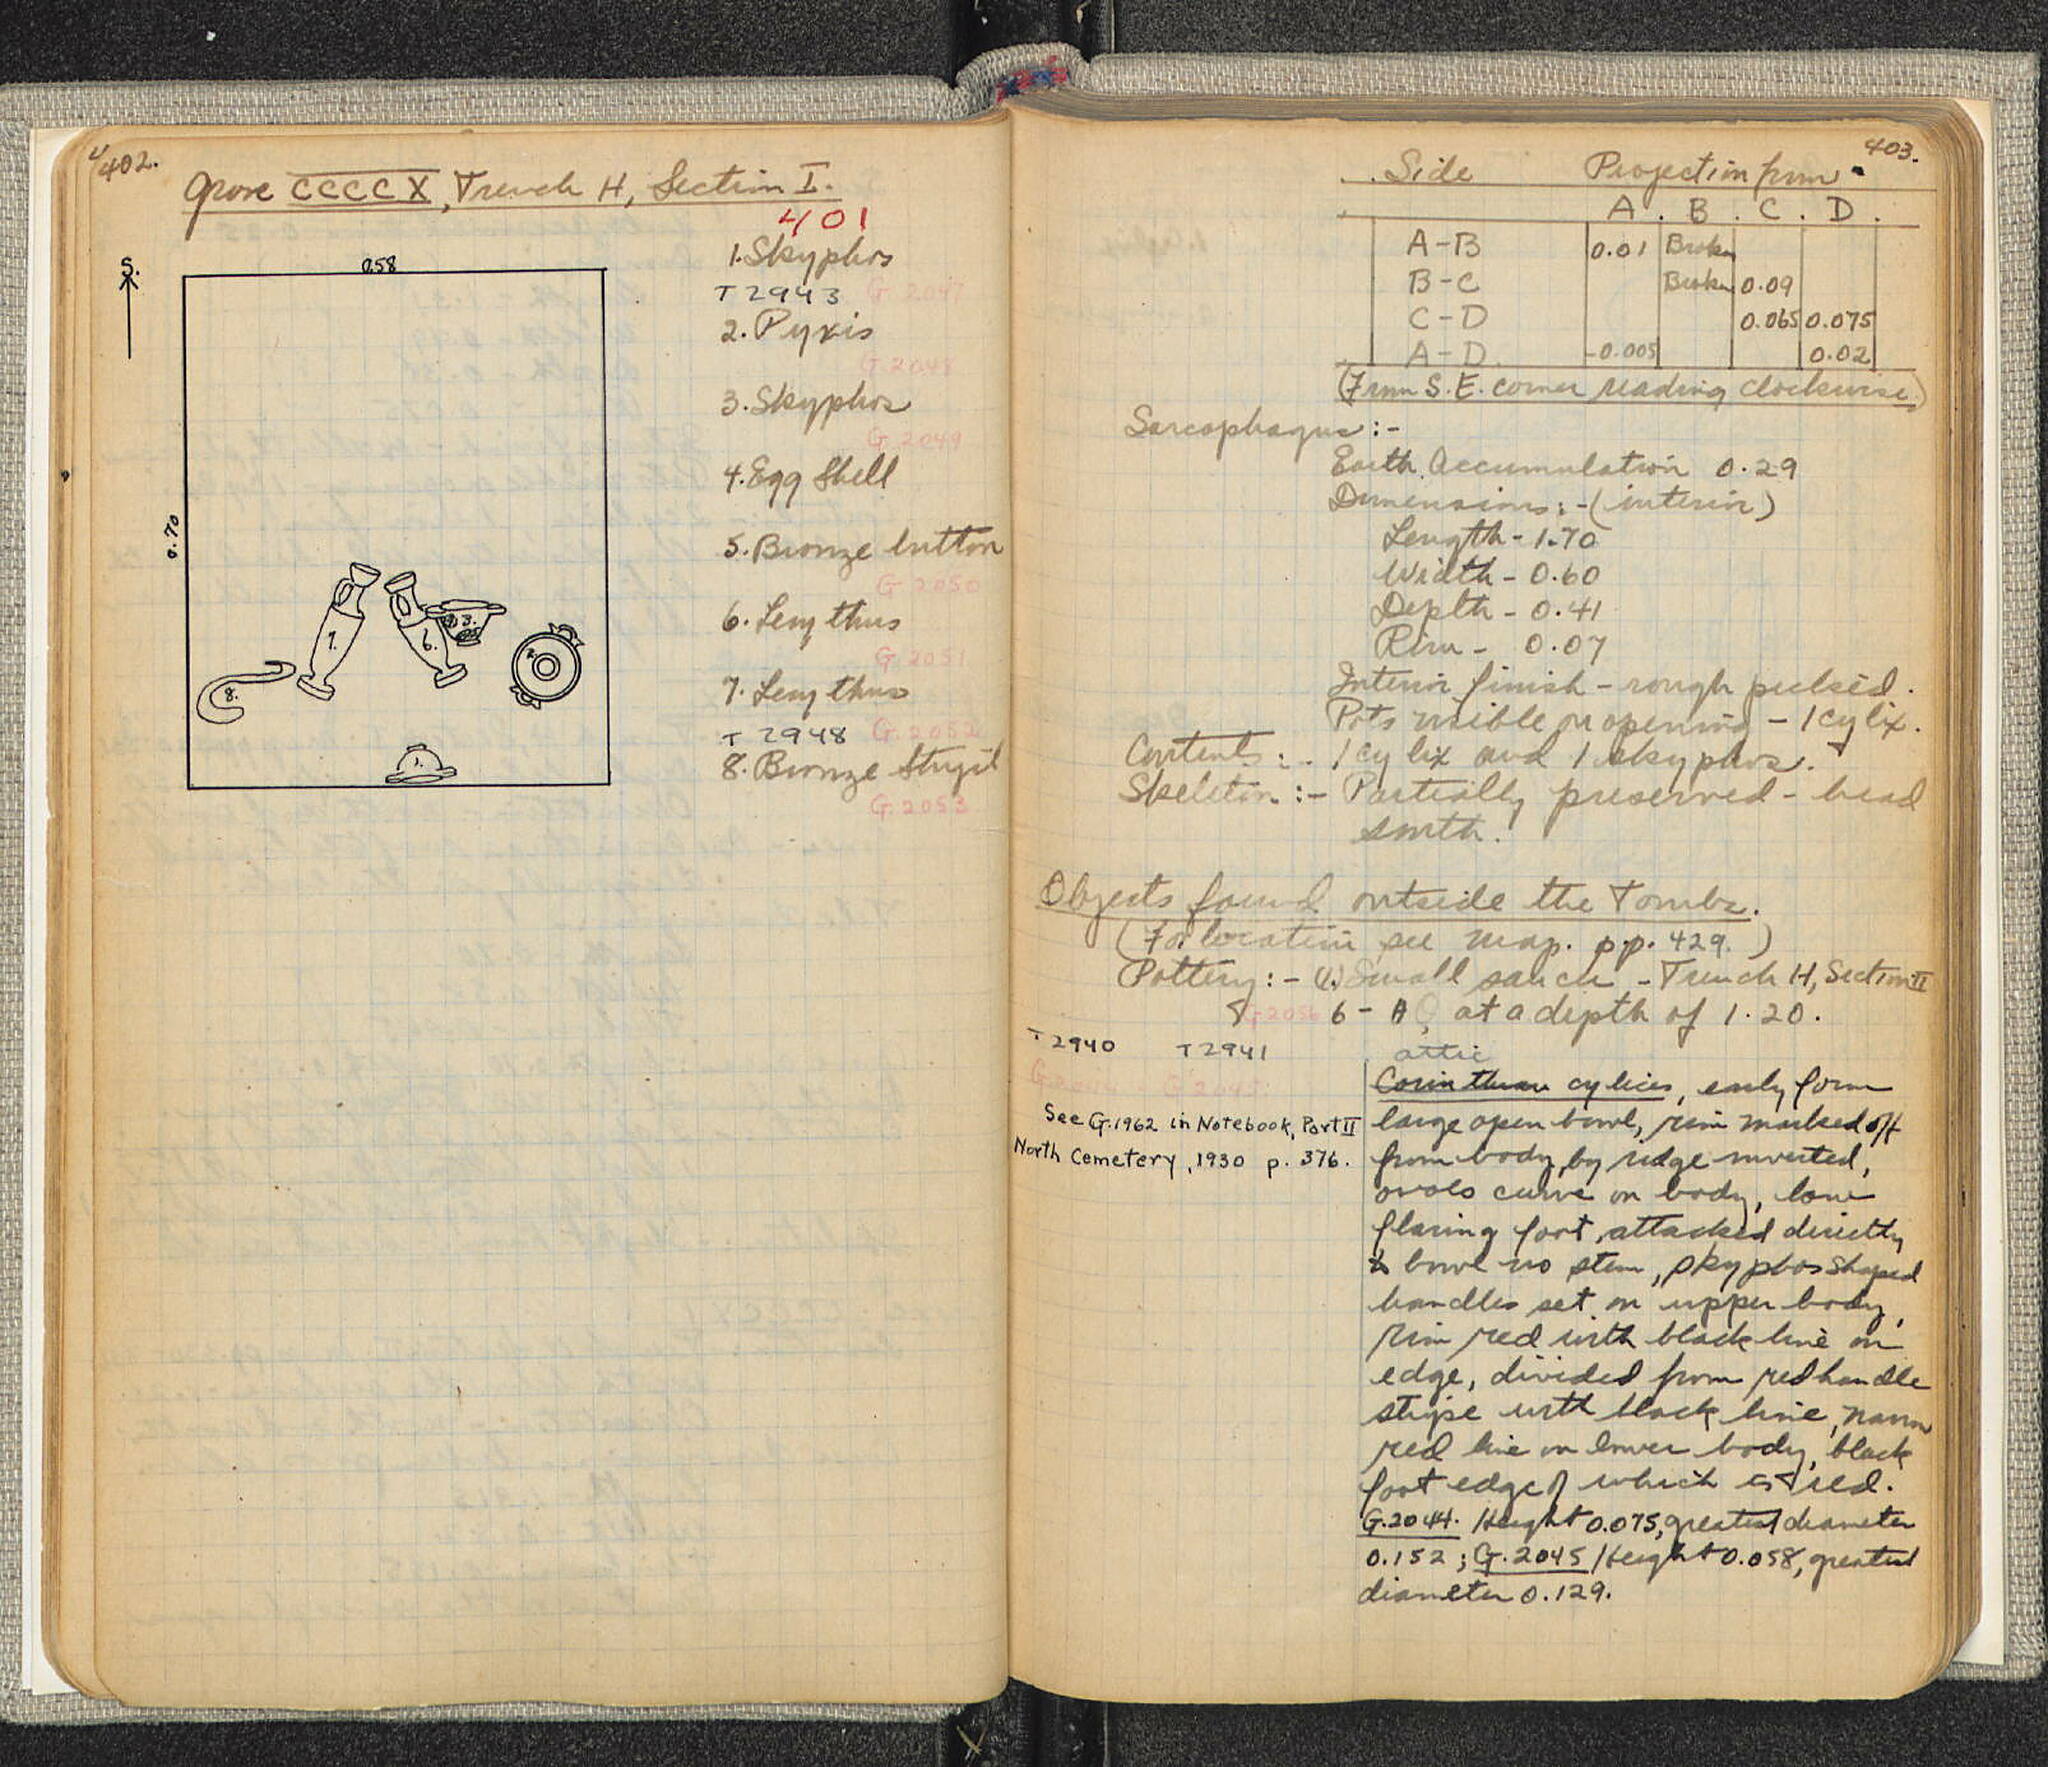 402.
Grave CCCCX, Trench H, Section I.
401
S.
0.58
0.70
7.
6.
3.
2.
8.
1.
1. Skyphos
T 2943 G. 2047
2. Pyxis
G. 2048
3. Skyphos
G. 2049
4. Egg Shell
5. Bronze button
G 2050
6. Lecythus
G. 2051
7. Lecythus
T 2948 G. 2052
8. Bronze Strigil
G. 2053
403.
Side Projection from
A. B. C. D.
A-B 0.01 Broken
B-C Broken 0.09
C-D 0.065 0.075
A-D. -0.005 0.02
(From S.E. corner reading clockwise)
Sarcophagus:-
Earth Accumulation 0.29
Dimensions:-(interior)
Length - 1.70
Width - 0.60
Depth - 0.41
Rim - 0.07
Interior finish - rough picked.
Pots visible on opening - 1 cylix.
Contents:- 1 cylix and 1 skyphos.
Skeleton:- Partially preserved - head
south.
Objects found outside the Tombs.
(For location see map. pp. 429.)
Pottery:- (1.) Small saucer - Trench H, Section II
G.2056 6 - A, at a depth of 1.20.
T 2940 T 2941
G.2044 G 2045.
See G.1962 in Notebook, Part II
North Cemetery, 1930 p. 376.
attic
Corinthian cylices, early form
large open bowl, rim marked off
from body by ridge inverted,
ovolo curve on body, low
flaring foot, attached directly
to bowl no stem, skyphos shaped
handles set on upper body,
rim red with black line on
edge, divided from red handle
stripe with black line, narrow
red line on lower body, black
foot edge of which is red.
G.2044. Height 0.075, greatest diameter
0.152; G.2045 Height 0.058, greatest
diameter 0.129.